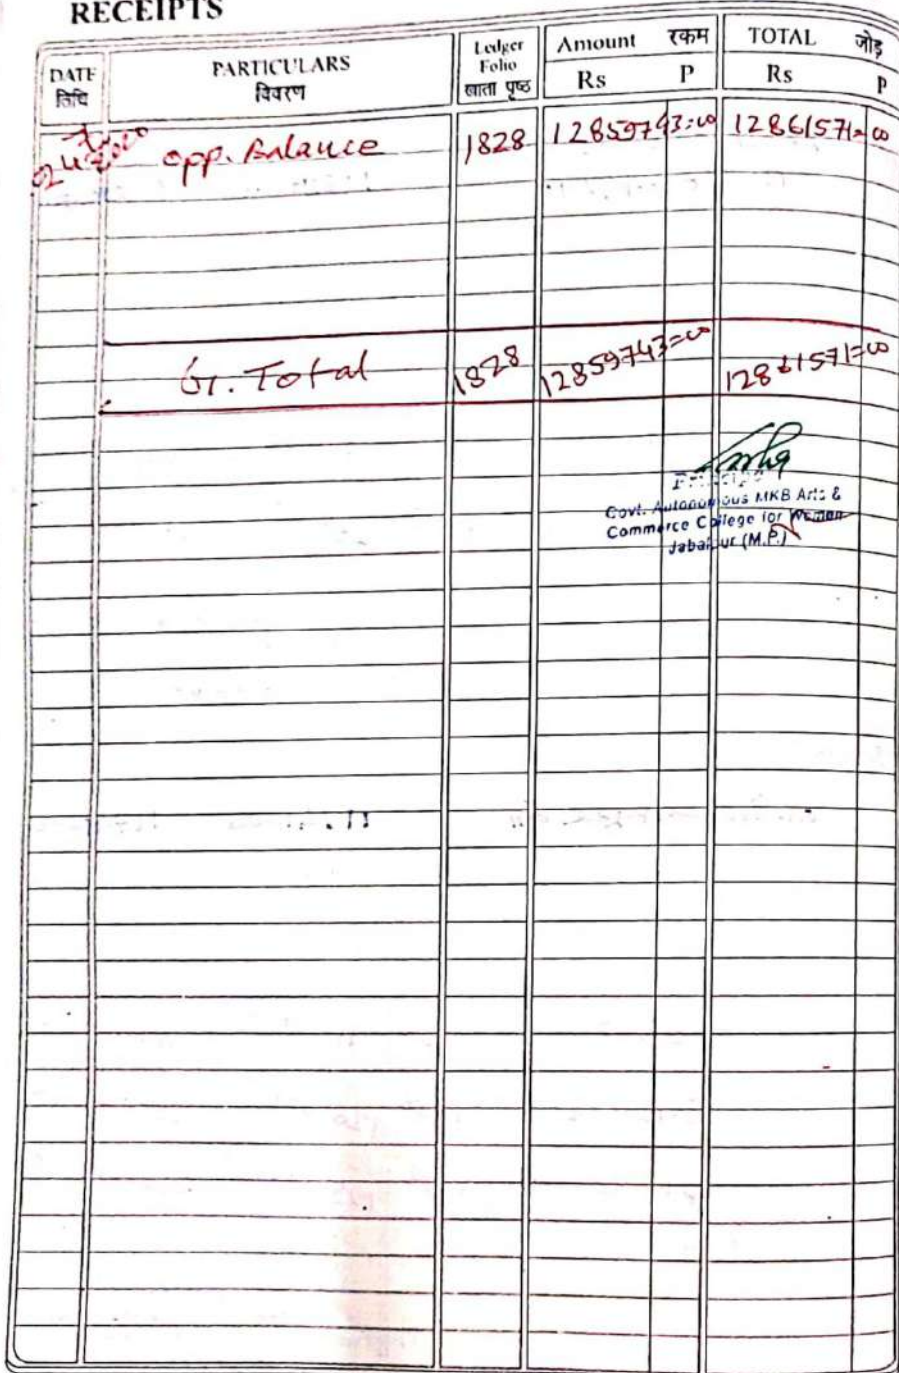 RECEIPTS
DATE तिथि PARTICULARS विवरण Ledger Folio खाता पृष्ठ Amount रकम Rs P TOTAL जोड़ Rs P
opp. Balance 1828 12859743=00 12861571=00
Gr. Total 1828 12859743=00 12861571=00
Principal
Govt. Autonomous MKB Arts &
Commerce College for Women
Jabalpur (M.P.)